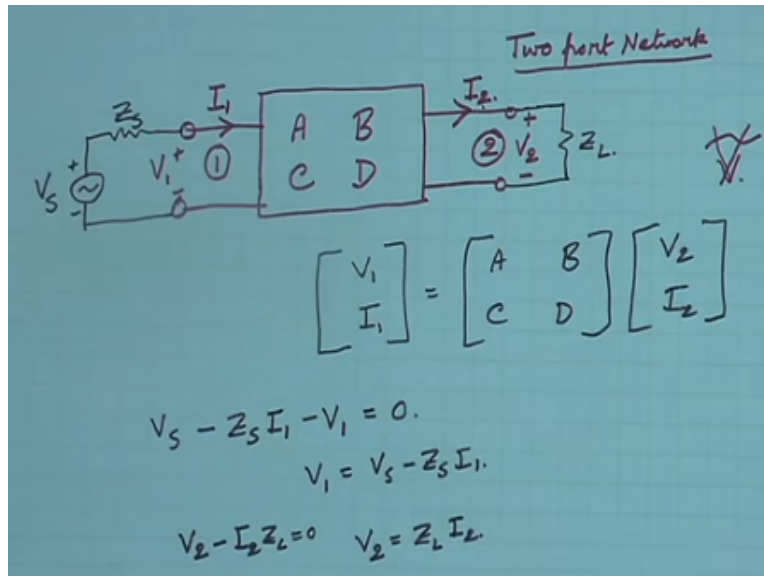 Two port Network
Z_S I_1 A B I_2.
V_S + - V_1 + - ① C D ② + V_2 - Z_L.
[V_1 I_1] = [A B C D] [V_2 I_2]
V_S - Z_S I_1 - V_1 = 0.
V_1 = V_S - Z_S I_1.
V_2 - I_2 Z_L = 0 V_2 = Z_L I_2.